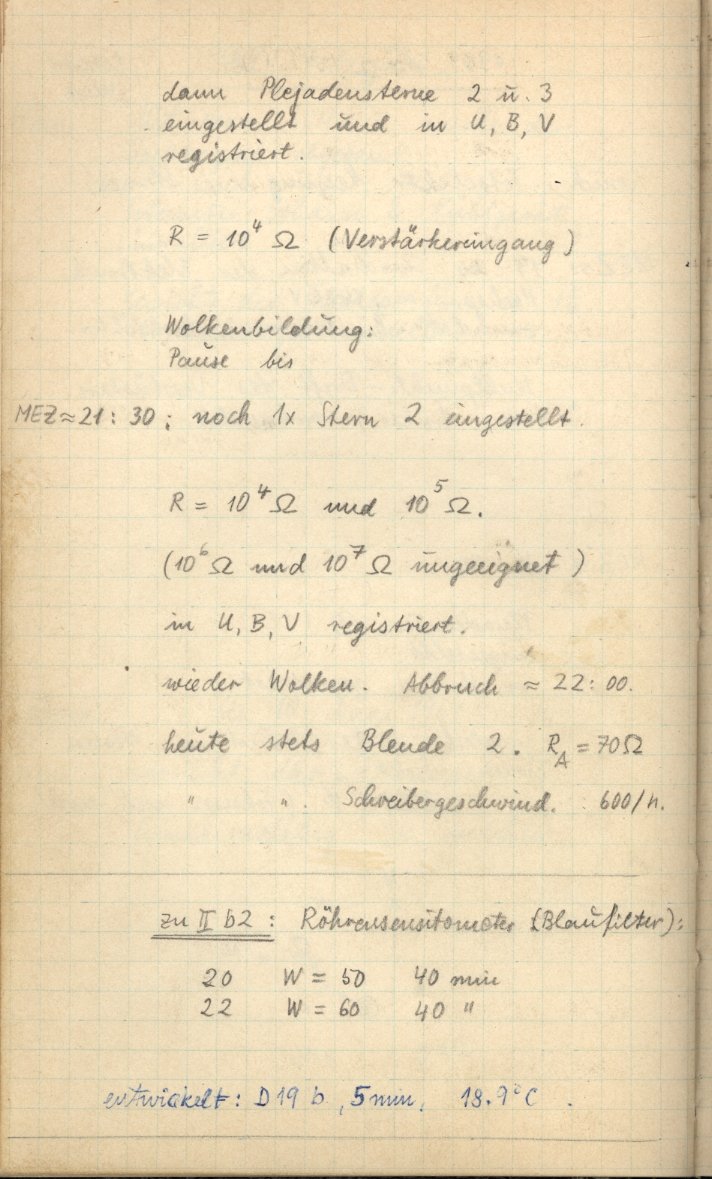 dann Plejadensterne 2 u. 3
eingestellt und in U, B, V
registriert.
R = 10⁴ Ω (Verstärkereingang)
Wolkenbildung:
Pause bis
MEZ ≈ 21:30; noch 1x Stern 2 eingestellt.
R = 10⁴ Ω und 10⁵ Ω.
(10⁶ Ω und 10⁷ Ω ungeeignet)
in U, B, V registriert.
wieder Wolken. Abbruch ≈ 22:00.
heute stets Blende 2. R_A = 70Ω
" ". Schreibergeschwind. 600/h.
zu II b2: Röhrensensitometer (Blaufilter):
20 W = 50 40 min
22 W = 60 40 "
entwickelt: D19 b, 5 min, 18.9°C.